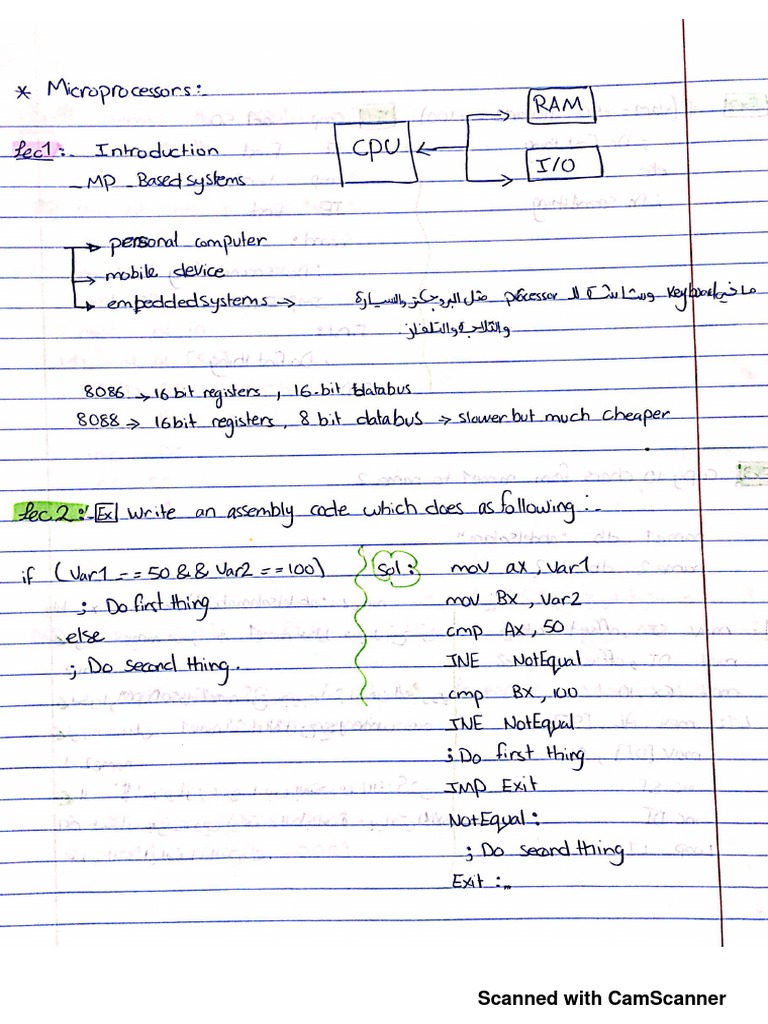 * Microprocessors:-
RAM
CPU
I/O
Lec1:- Introduction
- MP Based systems
→ personal computer
→ mobile device
→ embedded systems → ما فيها keyboard وشاشة الـ processor مثل البروجكتر والسيارة
والثلاجة والتلفاز
8086 → 16 bit registers, 16-bit databus
8088 → 16 bit registers, 8 bit databus → slower but much cheaper
Lec.2:- Ex Write an assembly code which does as following:-
if (Var1 == 50 && Var2 == 100)
; Do first thing
else
; Do second thing.
Sol: mov ax, Var1
mov Bx, Var2
cmp Ax, 50
JNE NotEqual
cmp Bx, 100
JNE NotEqual
; Do first thing
JMP Exit
NotEqual:
; Do second thing
Exit:-
Scanned with CamScanner